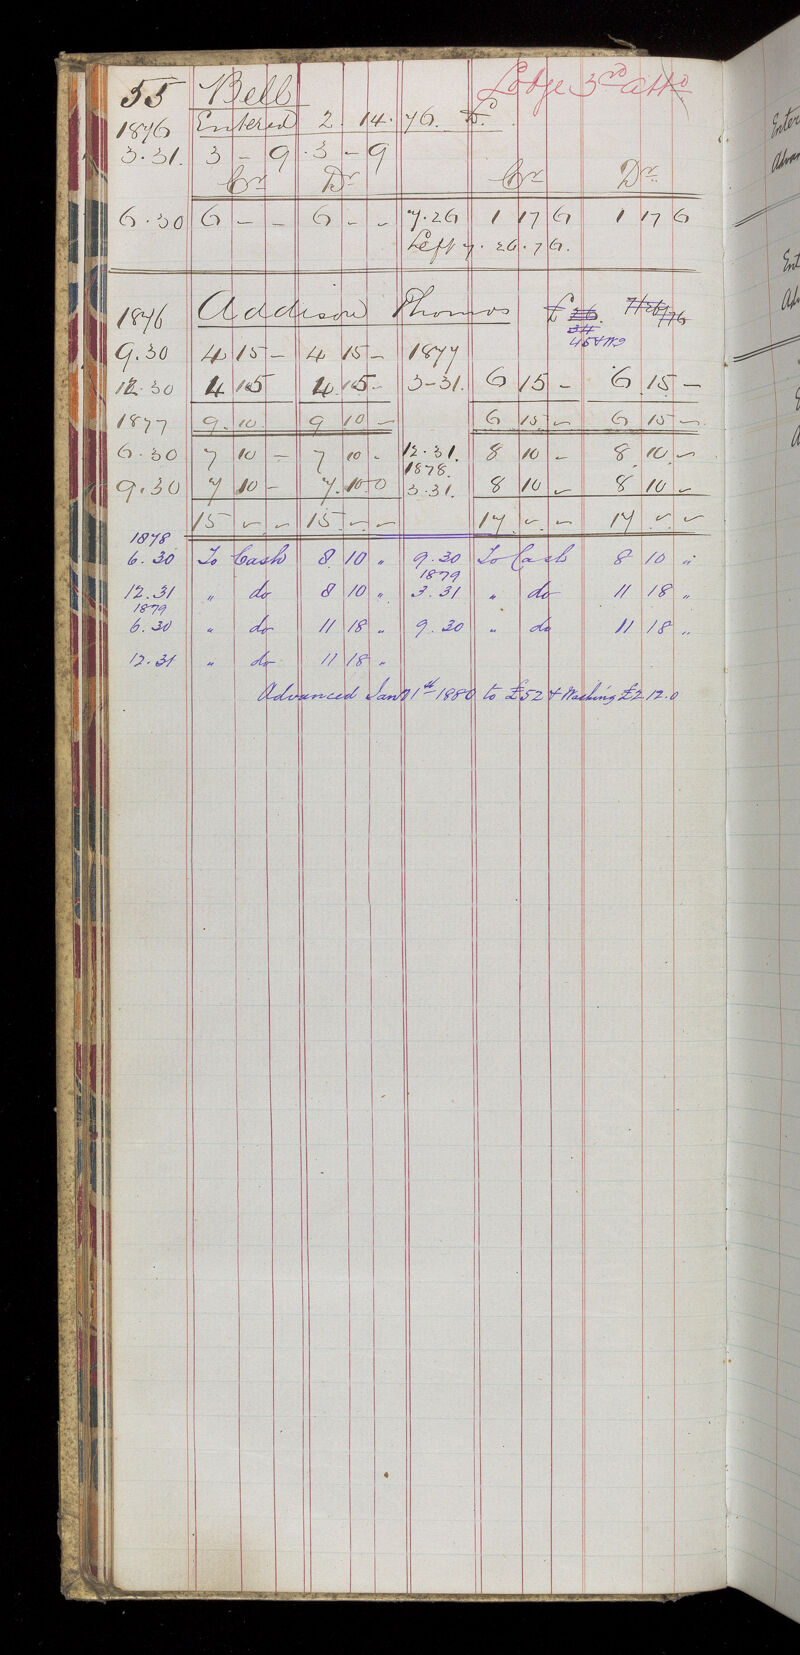 55 Bell Lodge 3rd atto
1876 Entered 2.14.76. £.
3.31. 3 - 9 . 3 - 9
Cr Dr Cr Dr
6.30 6 - - 6 - - 7.26 1 17 6 1 17 6
Left 7.26.76.
1876 Addison Thomas £ 26. 7/26/76
34
45 & W3
9.30 4 15 - 4 15 - 1877
12.30 4 15 4 15 - 3-31. 6 15 - 6 15 -
1877 9.10. 9 10 - 6 15 - 6 15 -
6.30 7 10 - 7 10 - 12.31. 8 10 - 8 10 -
1878.
9.30 7 10 - 7.10.0 3.31. 8 10 - 8 10 -
15 - - 15 - - 17 - - 17 - -
1878
6.30 To Cash 8 10 " 9.30 To Cash 8 10 "
1879
12.31 " do 8 10 " 3.31 " do 11 18 "
1879
6.30 " do 11 18 " 9.30 " do 11 18 "
12.31 " do 11 18 "
Advanced Jan 1st 1880 to £52 & Washing £2.12.0
Enter
Advan
Ent
Adv